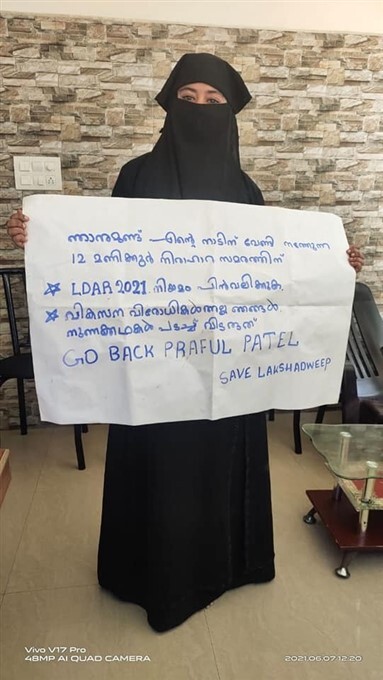 ഞാനുമുണ്ട് എന്റെ നാടിന് വേണ്ടി നടത്തുന്ന
12 മണിക്കൂർ നിരാഹാര സമരത്തിന്
LDAR 2021 നിയമം പിൻവലിക്കുക.
വികസന വിരോധികൾ ഞങ്ങൾ.
നുണക്കഥകൾ പടച്ച് വിടരുത്
GO BACK PRAFUL PATEL
SAVE LAKSHADWEEP
Vivo V17 Pro
48MP AI QUAD CAMERA
2021.06.07 12:20